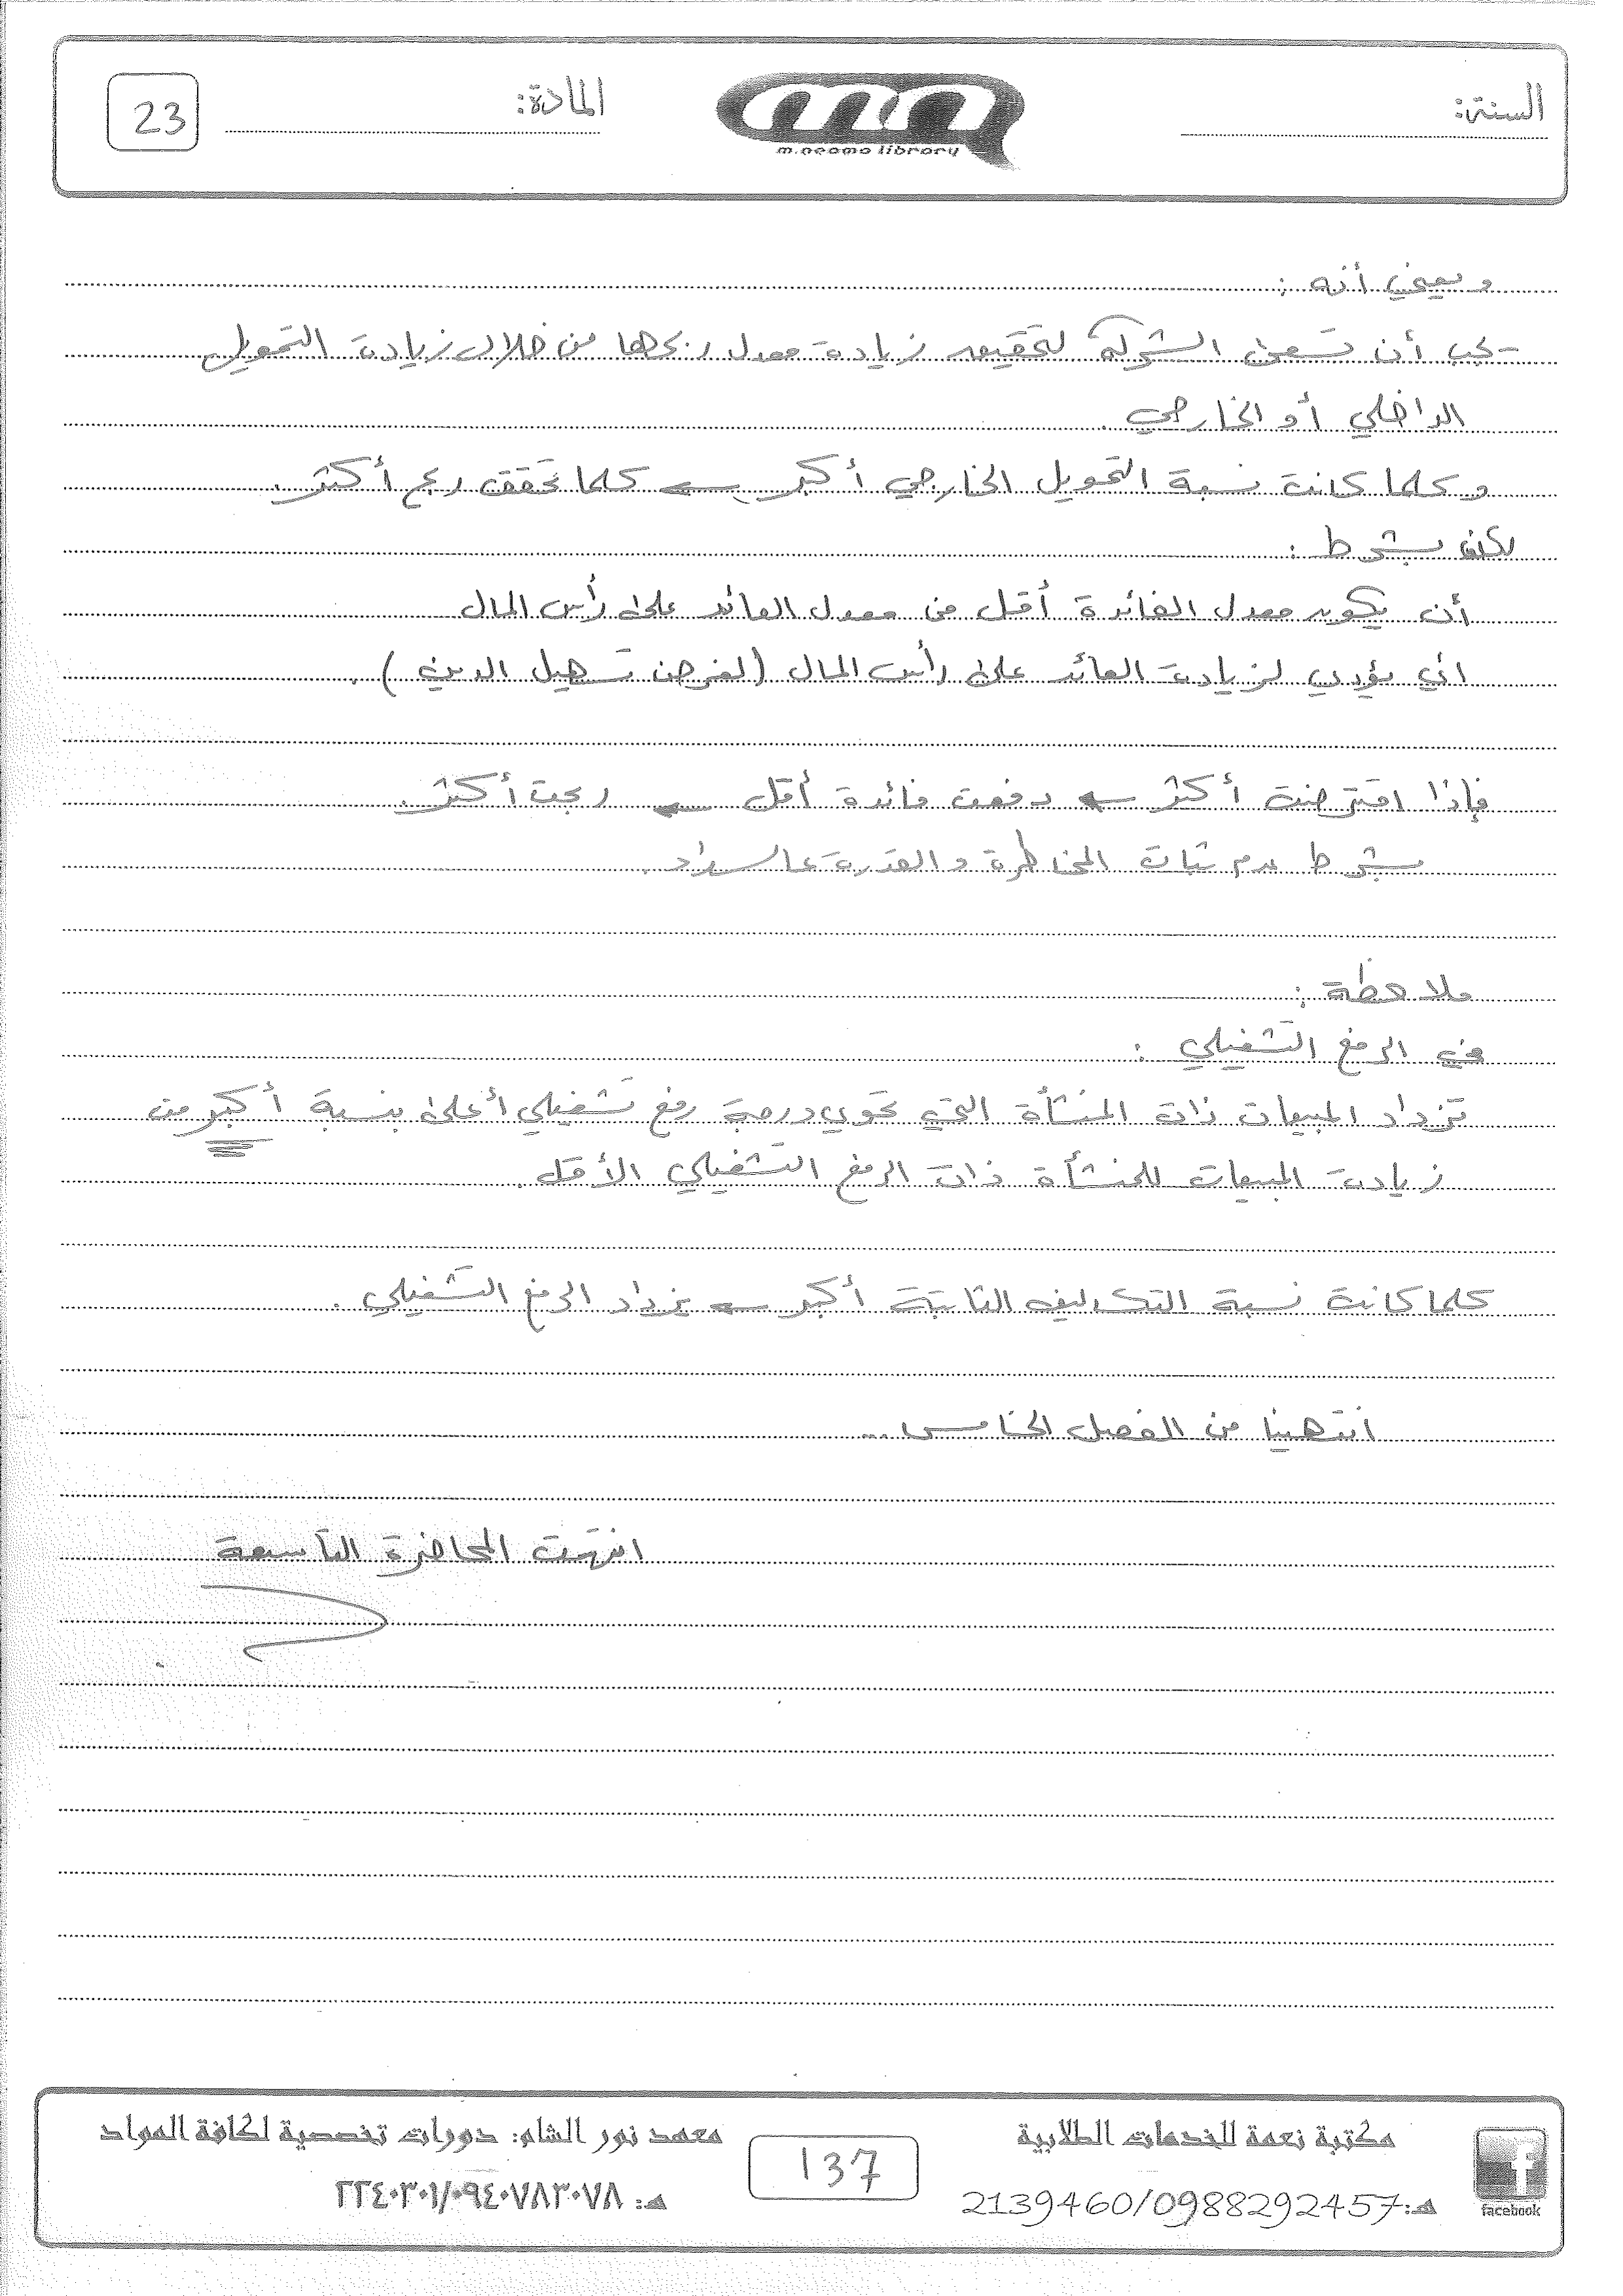 السنة:
m.neama library
المادة:
23
ويعني أنه :
- يجب أن تسعى الشركة لتحقيق زيادة معدل ربحها من خلال زيادة التمويل
الداخلي أو الخارجي .
وكلما كانت نسبة التمويل الخارجي أكبر ← كلما تحقق ربح أكثر .
لكن بشرط :
أن يكون معدل الفائدة أقل من معدل العائد على رأس المال
أي يؤدي لزيادة العائد على رأس المال ( لغرض تسهيل الدين ) .
فإذا اقترضت أكثر ← دفعت فائدة أقل ← ربحت أكثر .
بشرط عدم ثبات المخاطرة والقدرة عالسداد .
ملاحظة :
في الرفع التشغيلي :
تزداد المبيعات ذات المنشأة التي تحوي درجة رفع تشغيلي أعلى بنسبة أكبر من
زيادة المبيعات للمنشأة ذات الرفع التشغيلي الأقل .
كلما كانت نسبة التكاليف الثابتة أكبر ← يزداد الرفع التشغيلي .
انتهينا من الفصل الخامس ...
انتهت المحاضرة التاسعة
مكتبة نعمة للخدمات الطلابية
هـ: 2139460/0988292457
facebook
137
معهد نور الشام: دورات تخصصية لكافة المواد
هـ: ٢٢٤٠٣٠١/٠٩٤٠٧٨٣٠٧٨